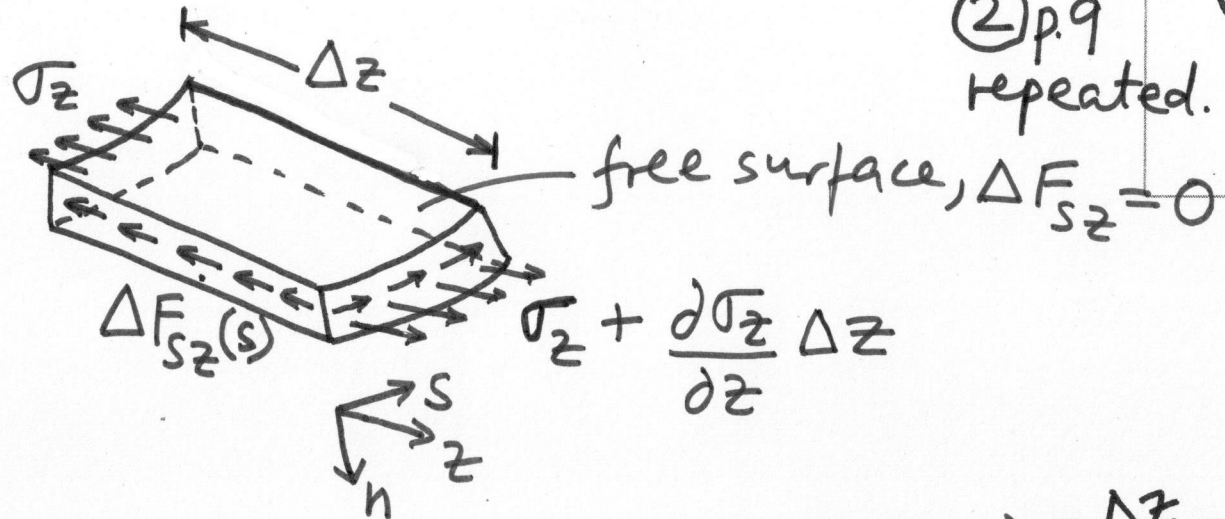 ② p.9
repeated.
Δz
σz
free surface, ΔF_sz = 0
ΔF_sz(s)
σz + ∂σz/∂z Δz
s
z
n
Δz